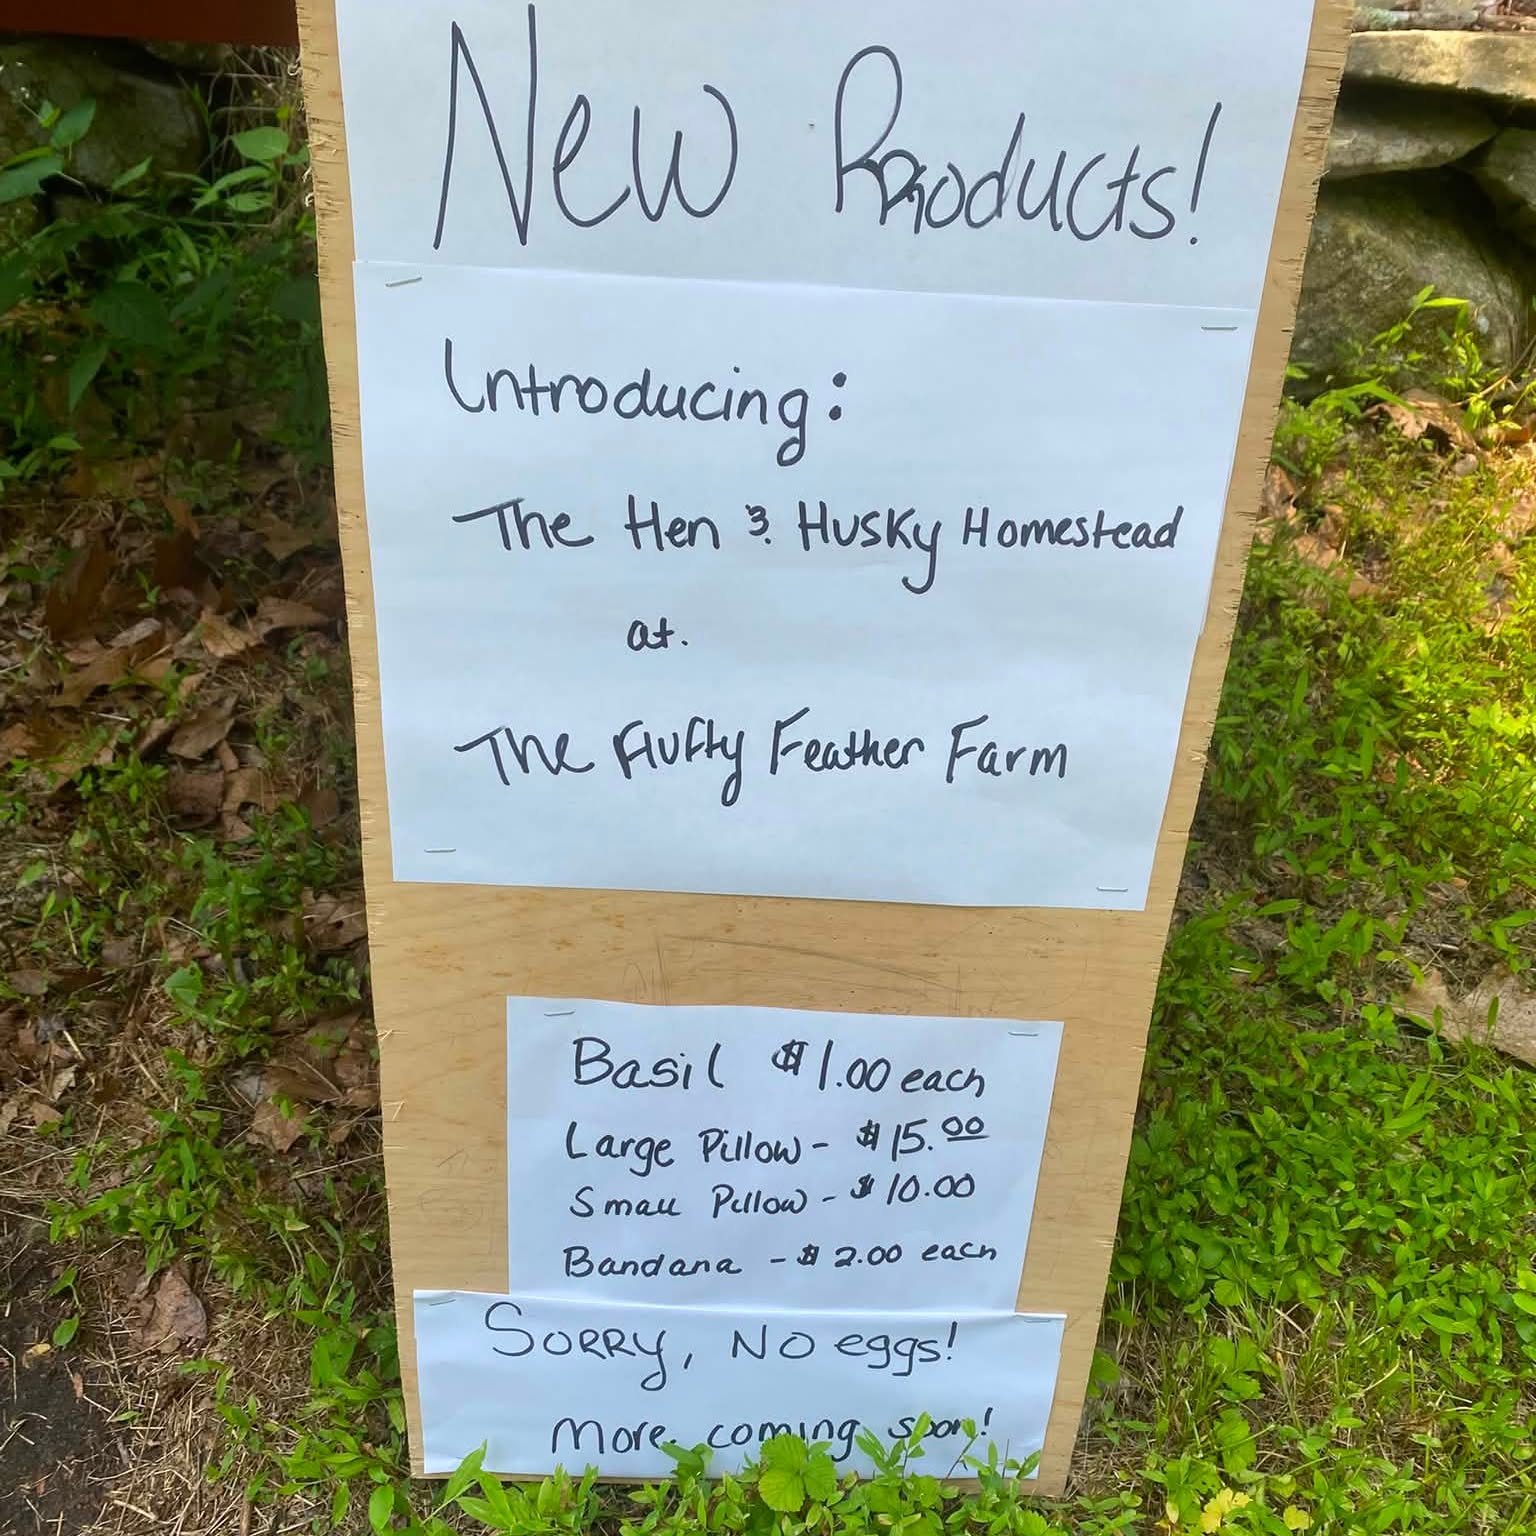 New Products!
Introducing:
The Hen & Husky Homestead
at.
The Fluffy Feather Farm
Basil $1.00 each
Large Pillow - $15.00
Small Pillow - $10.00
Bandana - $2.00 each
SORRY, NO eggs!
More coming soon!